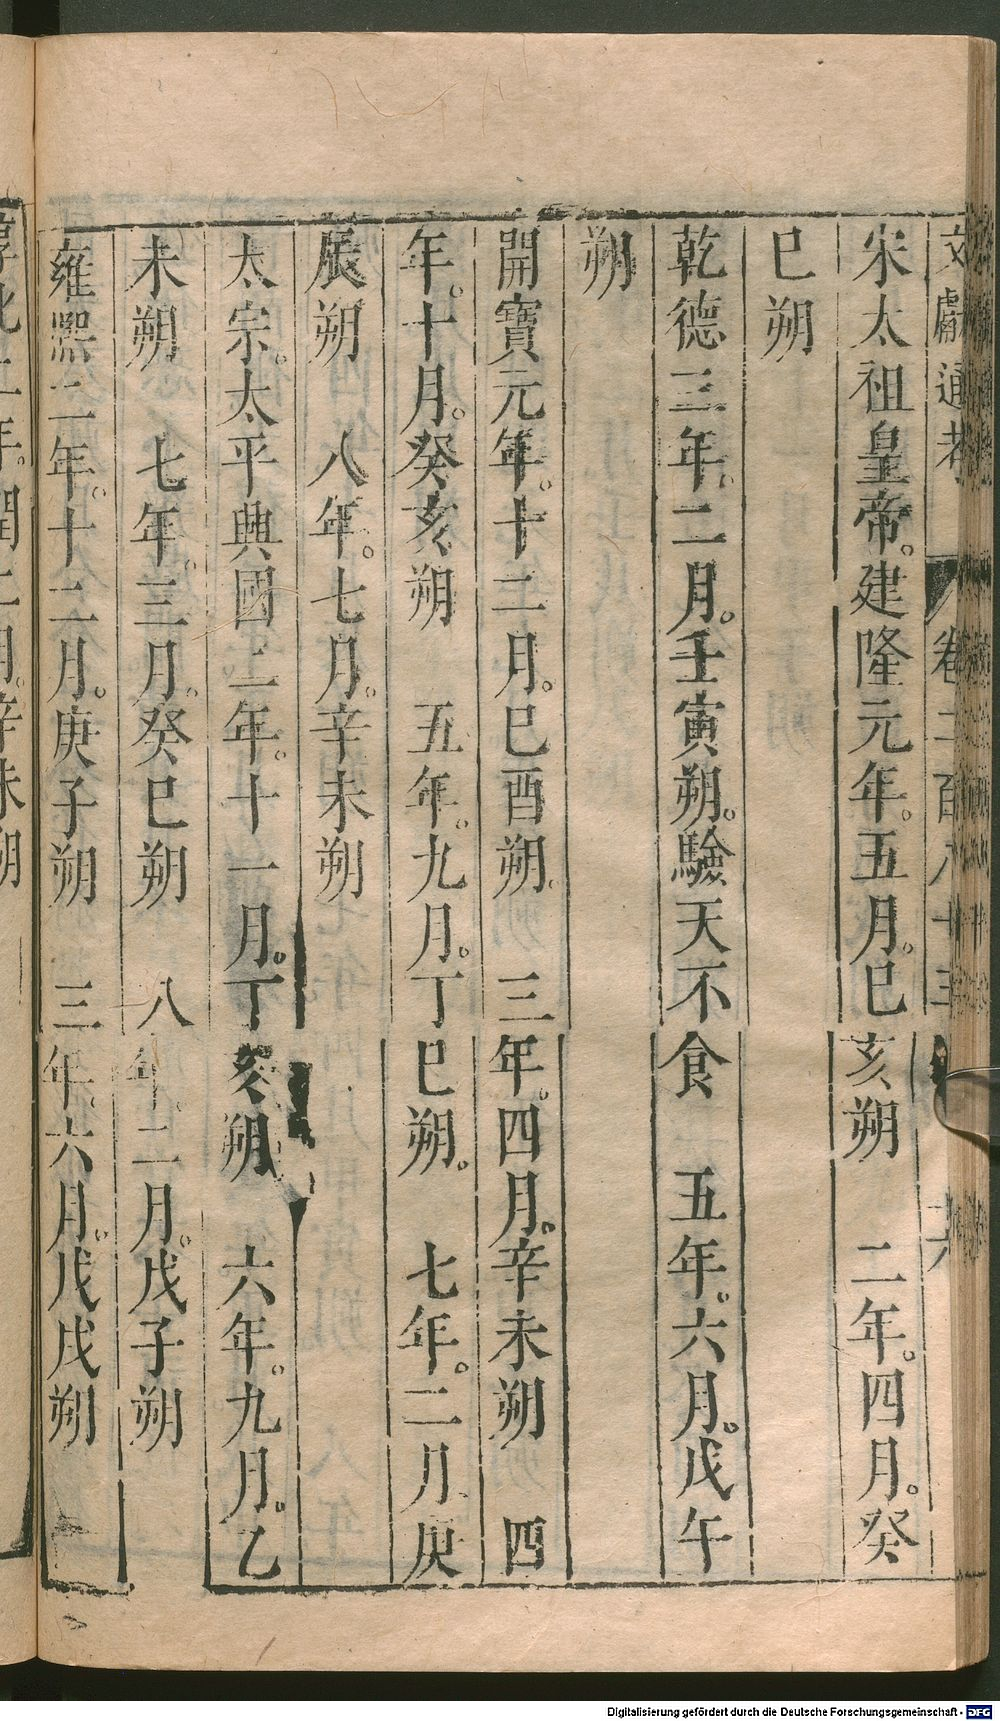 文獻通考 卷二百八十三 十六
宋太祖皇帝。建隆元年。五月。己亥朔 二年。四月。癸
巳朔
乾德三年。二月。壬寅朔。驗天不食 五年。六月。戊午
朔
開寶元年。十二月。己酉朔。 三年。四月。辛未朔 四
年。十月。癸亥朔 五年。九月。丁巳朔。 七年。二月庚
辰朔 八年。七月。辛未朔
太宗。太平興國二年。十一月。丁亥朔 六年。九月。乙
未朔 七年。三月。癸巳朔 八年。二月。戊子朔
雍熙二年。十二月。庚子朔 三年。六月。戊戌朔
年。閏二月。辛未朔
Digitalisierung gefördert durch die Deutsche Forschungsgemeinschaft - DFG